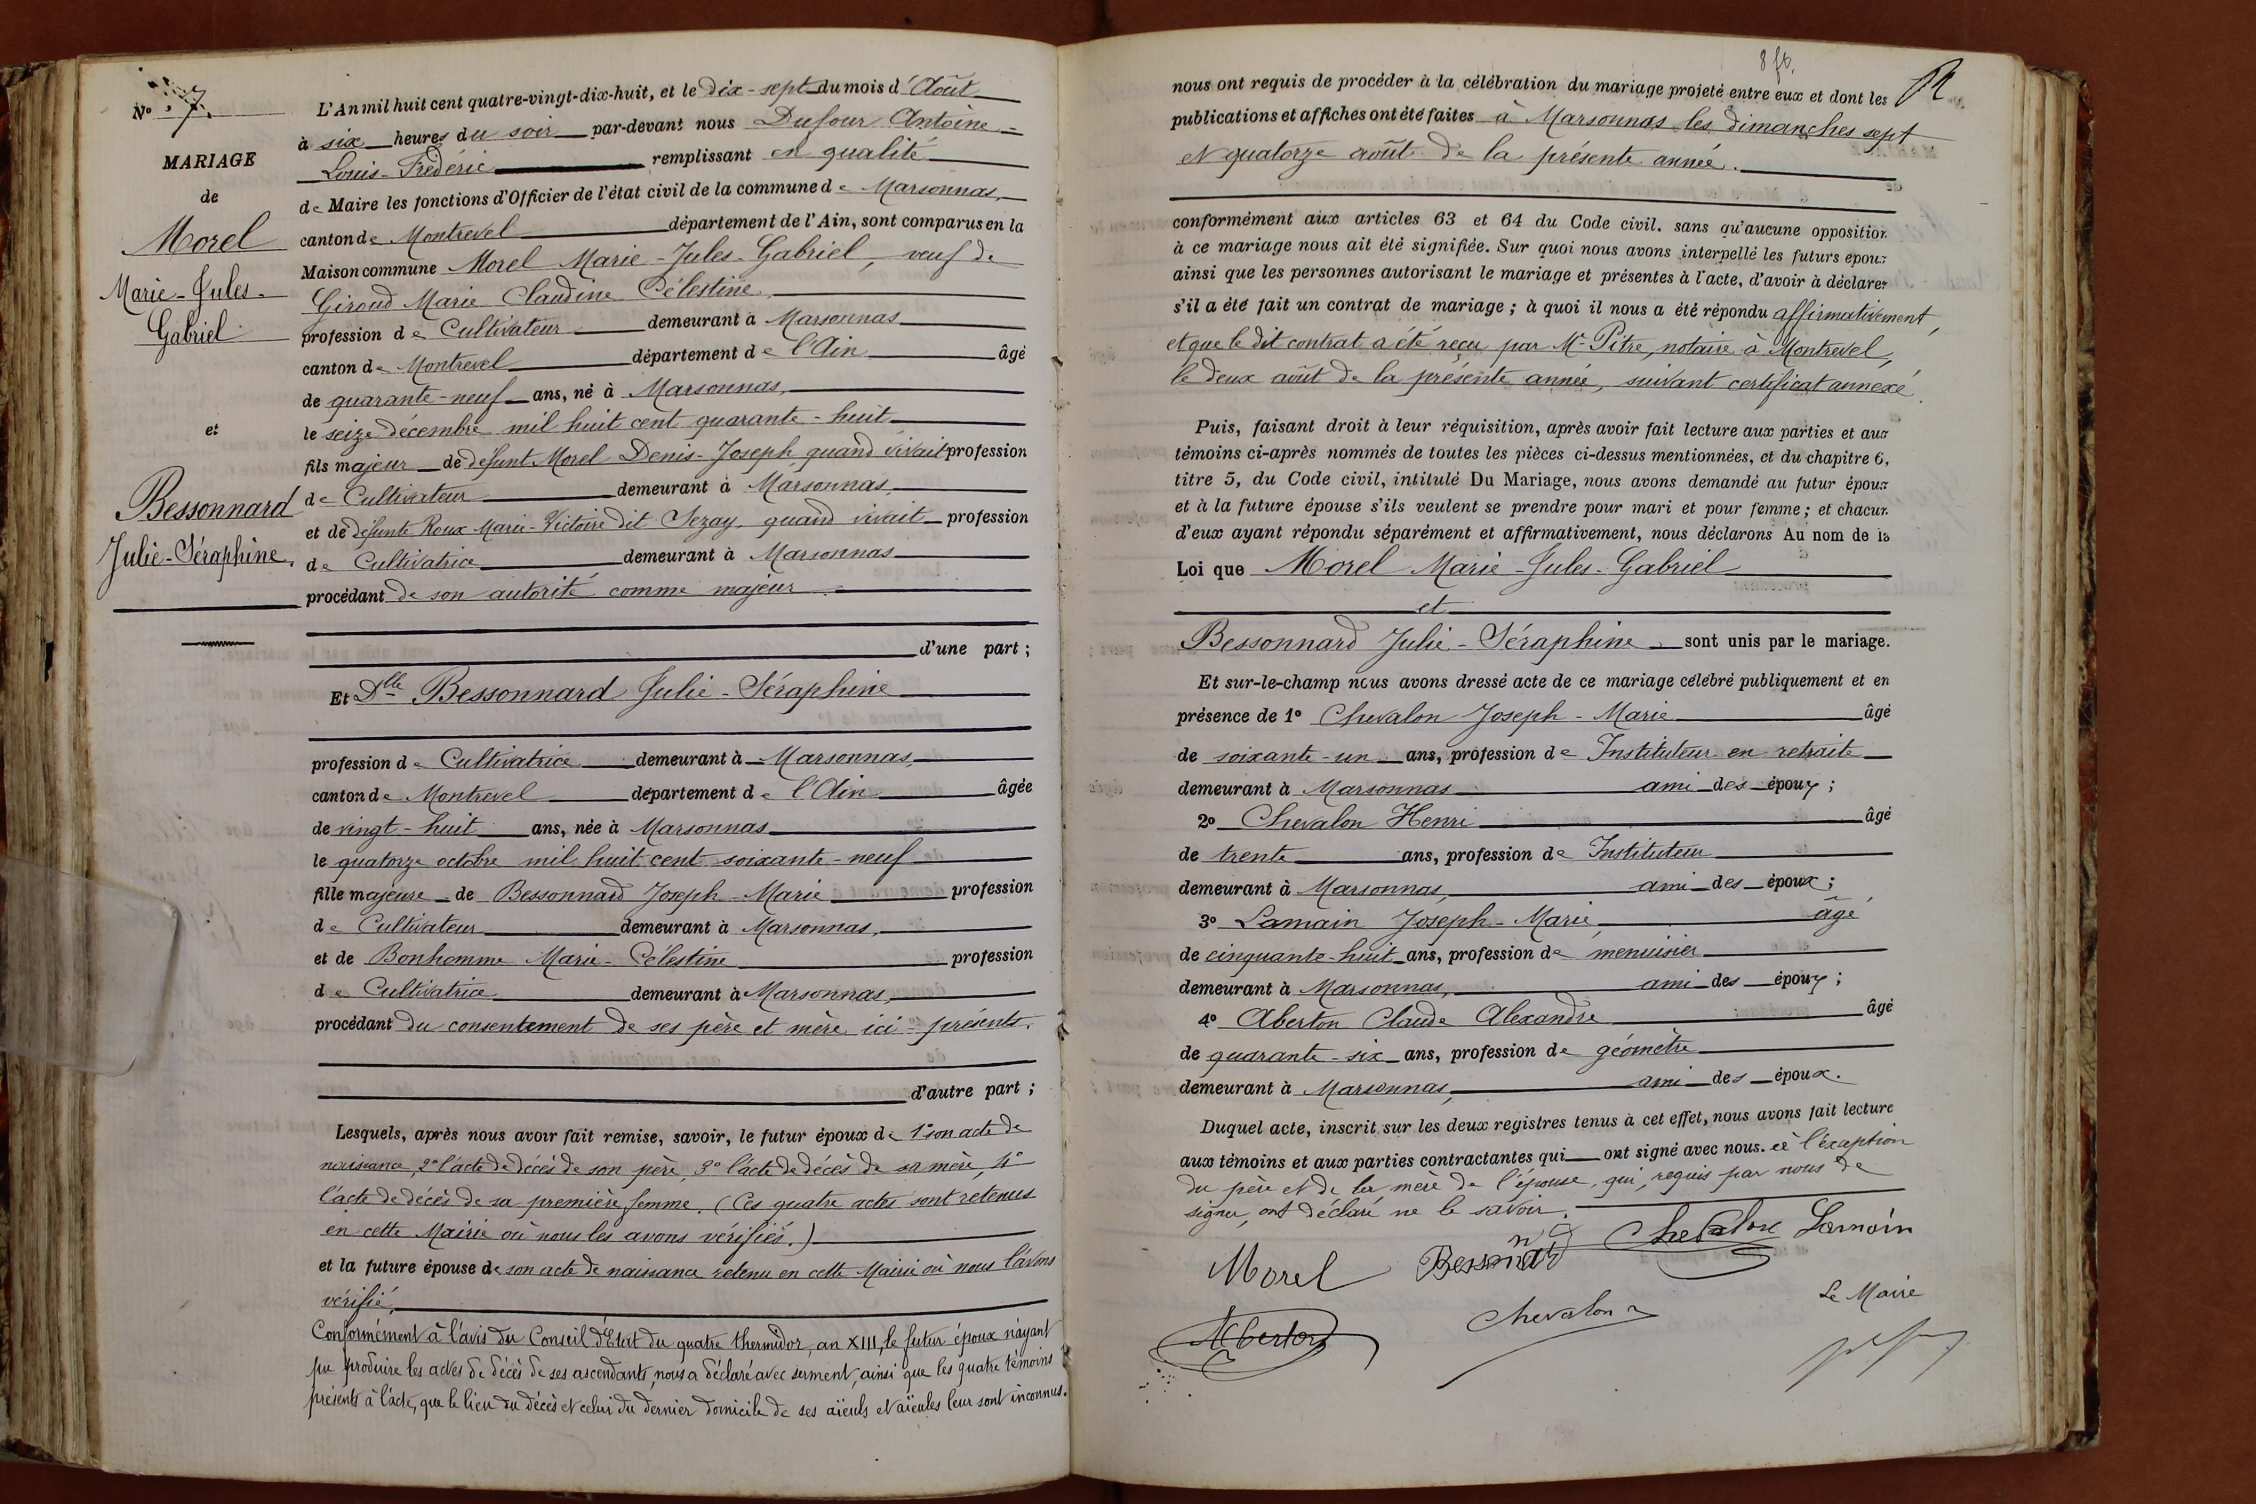 N° 7.
MARIAGE
de
Morel
Marie-Jules-
Gabriel
et
Bessonnard
Julie-Séraphine.
L'An mil huit cent quatre-vingt-dix-huit, et le dix-sept du mois d'Août
à six heures du soir par-devant nous Dufour Antoine-
Louis-Frédéric remplissant en qualité
de Maire les fonctions d'Officier de l'état civil de la commune de Marsonnas,
canton de Montrevel département de l'Ain, sont comparus en la
Maison commune Morel Marie-Jules-Gabriel, veuf de
Giroud Marie Claudine Célestine,
profession de Cultivateur demeurant à Marsonnas
canton de Montrevel département de l'Ain âgé
de quarante-neuf ans, né à Marsonnas,
le seize décembre mil huit cent quarante-huit
fils majeur de défunt Morel Denis-Joseph quand vivait profession
de Cultivateur demeurant à Marsonnas,
et de défunte Roux Marie-Victoire dit Sezay quand vivait profession
de Cultivatrice demeurant à Marsonnas
procédant de son autorité comme majeur
d'une part ;
Et Dlle Bessonnard Julie-Séraphine
profession de Cultivatrice demeurant à Marsonnas,
canton de Montrevel département de l'Ain âgée
de vingt-huit ans, née à Marsonnas
le quatorze octobre mil huit cent soixante-neuf
fille majeure de Bessonnard Joseph-Marie profession
de Cultivateur demeurant à Marsonnas,
et de Bonhomme Marie-Célestine profession
de Cultivatrice demeurant à Marsonnas,
procédant du consentement de ses père et mère ici-présents.
d'autre part ;
Lesquels, après nous avoir fait remise, savoir, le futur époux de 1° son acte de
naissance, 2° l'acte de décès de son père, 3° l'acte de décès de sa mère, 4°
l'acte de décès de sa première femme. (Ces quatre actes sont retenus
en cette Mairie où nous les avons vérifiés.)
et la future épouse de son acte de naissance retenu en cette Mairie où nous l'avons
vérifié,
Conformément à l'avis du Conseil d'Etat du quatre thermidor, an XIII, le futur époux n'ayant
pu produire les actes de décès de ses ascendants, nous a déclaré avec serment, ainsi que les quatre témoins
présents à l'acte, que le lieu du décès et celui du dernier domicile de ses aïeuls et aïeules leur sont inconnus.
nous ont requis de procéder à la célébration du mariage projeté entre eux et dont les
publications et affiches ont été faites à Marsonnas les dimanches sept
et quatorze août de la présente année.
conformément aux articles 63 et 64 du Code civil. sans qu'aucune opposition
à ce mariage nous ait été signifiée. Sur quoi nous avons interpellé les futurs époux
ainsi que les personnes autorisant le mariage et présentes à l'acte, d'avoir à déclarer
s'il a été fait un contrat de mariage ; à quoi il nous a été répondu affirmativement,
et que le dit contrat a été reçu par Me Pitre, notaire à Montrevel,
le deux août de la présente année, suivant certificat annexé.
Puis, faisant droit à leur réquisition, après avoir fait lecture aux parties et aux
témoins ci-après nommés de toutes les pièces ci-dessus mentionnées, et du chapitre 6,
titre 5, du Code civil, intitulé Du Mariage, nous avons demandé au futur époux
et à la future épouse s'ils veulent se prendre pour mari et pour femme ; et chacun
d'eux ayant répondu séparément et affirmativement, nous déclarons Au nom de la
Loi que Morel Marie-Jules-Gabriel
et
Bessonnard Julie-Séraphine sont unis par le mariage.
Et sur-le-champ nous avons dressé acte de ce mariage célébré publiquement et en
présence de 1° Chevalon Joseph-Marie âgé
de soixante-un ans, profession de Instituteur en retraite
demeurant à Marsonnas ami des époux ;
2° Chevalon Henri âgé
de trente ans, profession de Instituteur
demeurant à Marsonnas, ami des époux ;
3° Lamain Joseph-Marie, âgé
de cinquante-huit ans, profession de menuisier
demeurant à Marsonnas, ami des époux ;
4° Aberton Claude Alexandre âgé
de quarante-six ans, profession de géomètre
demeurant à Marsonnas, ami des époux.
Duquel acte, inscrit sur les deux registres tenus à cet effet, nous avons fait lecture
aux témoins et aux parties contractantes qui ont signé avec nous. à l'exception
du père et de la mère de l'épouse, qui, requis par nous de
signer, ont déclaré ne le savoir.
Morel Bessonnard Chevalon Lamain
Aberton Chevalon Le Maire